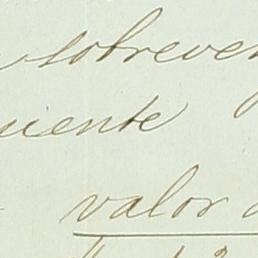 sobreven
uente
valor